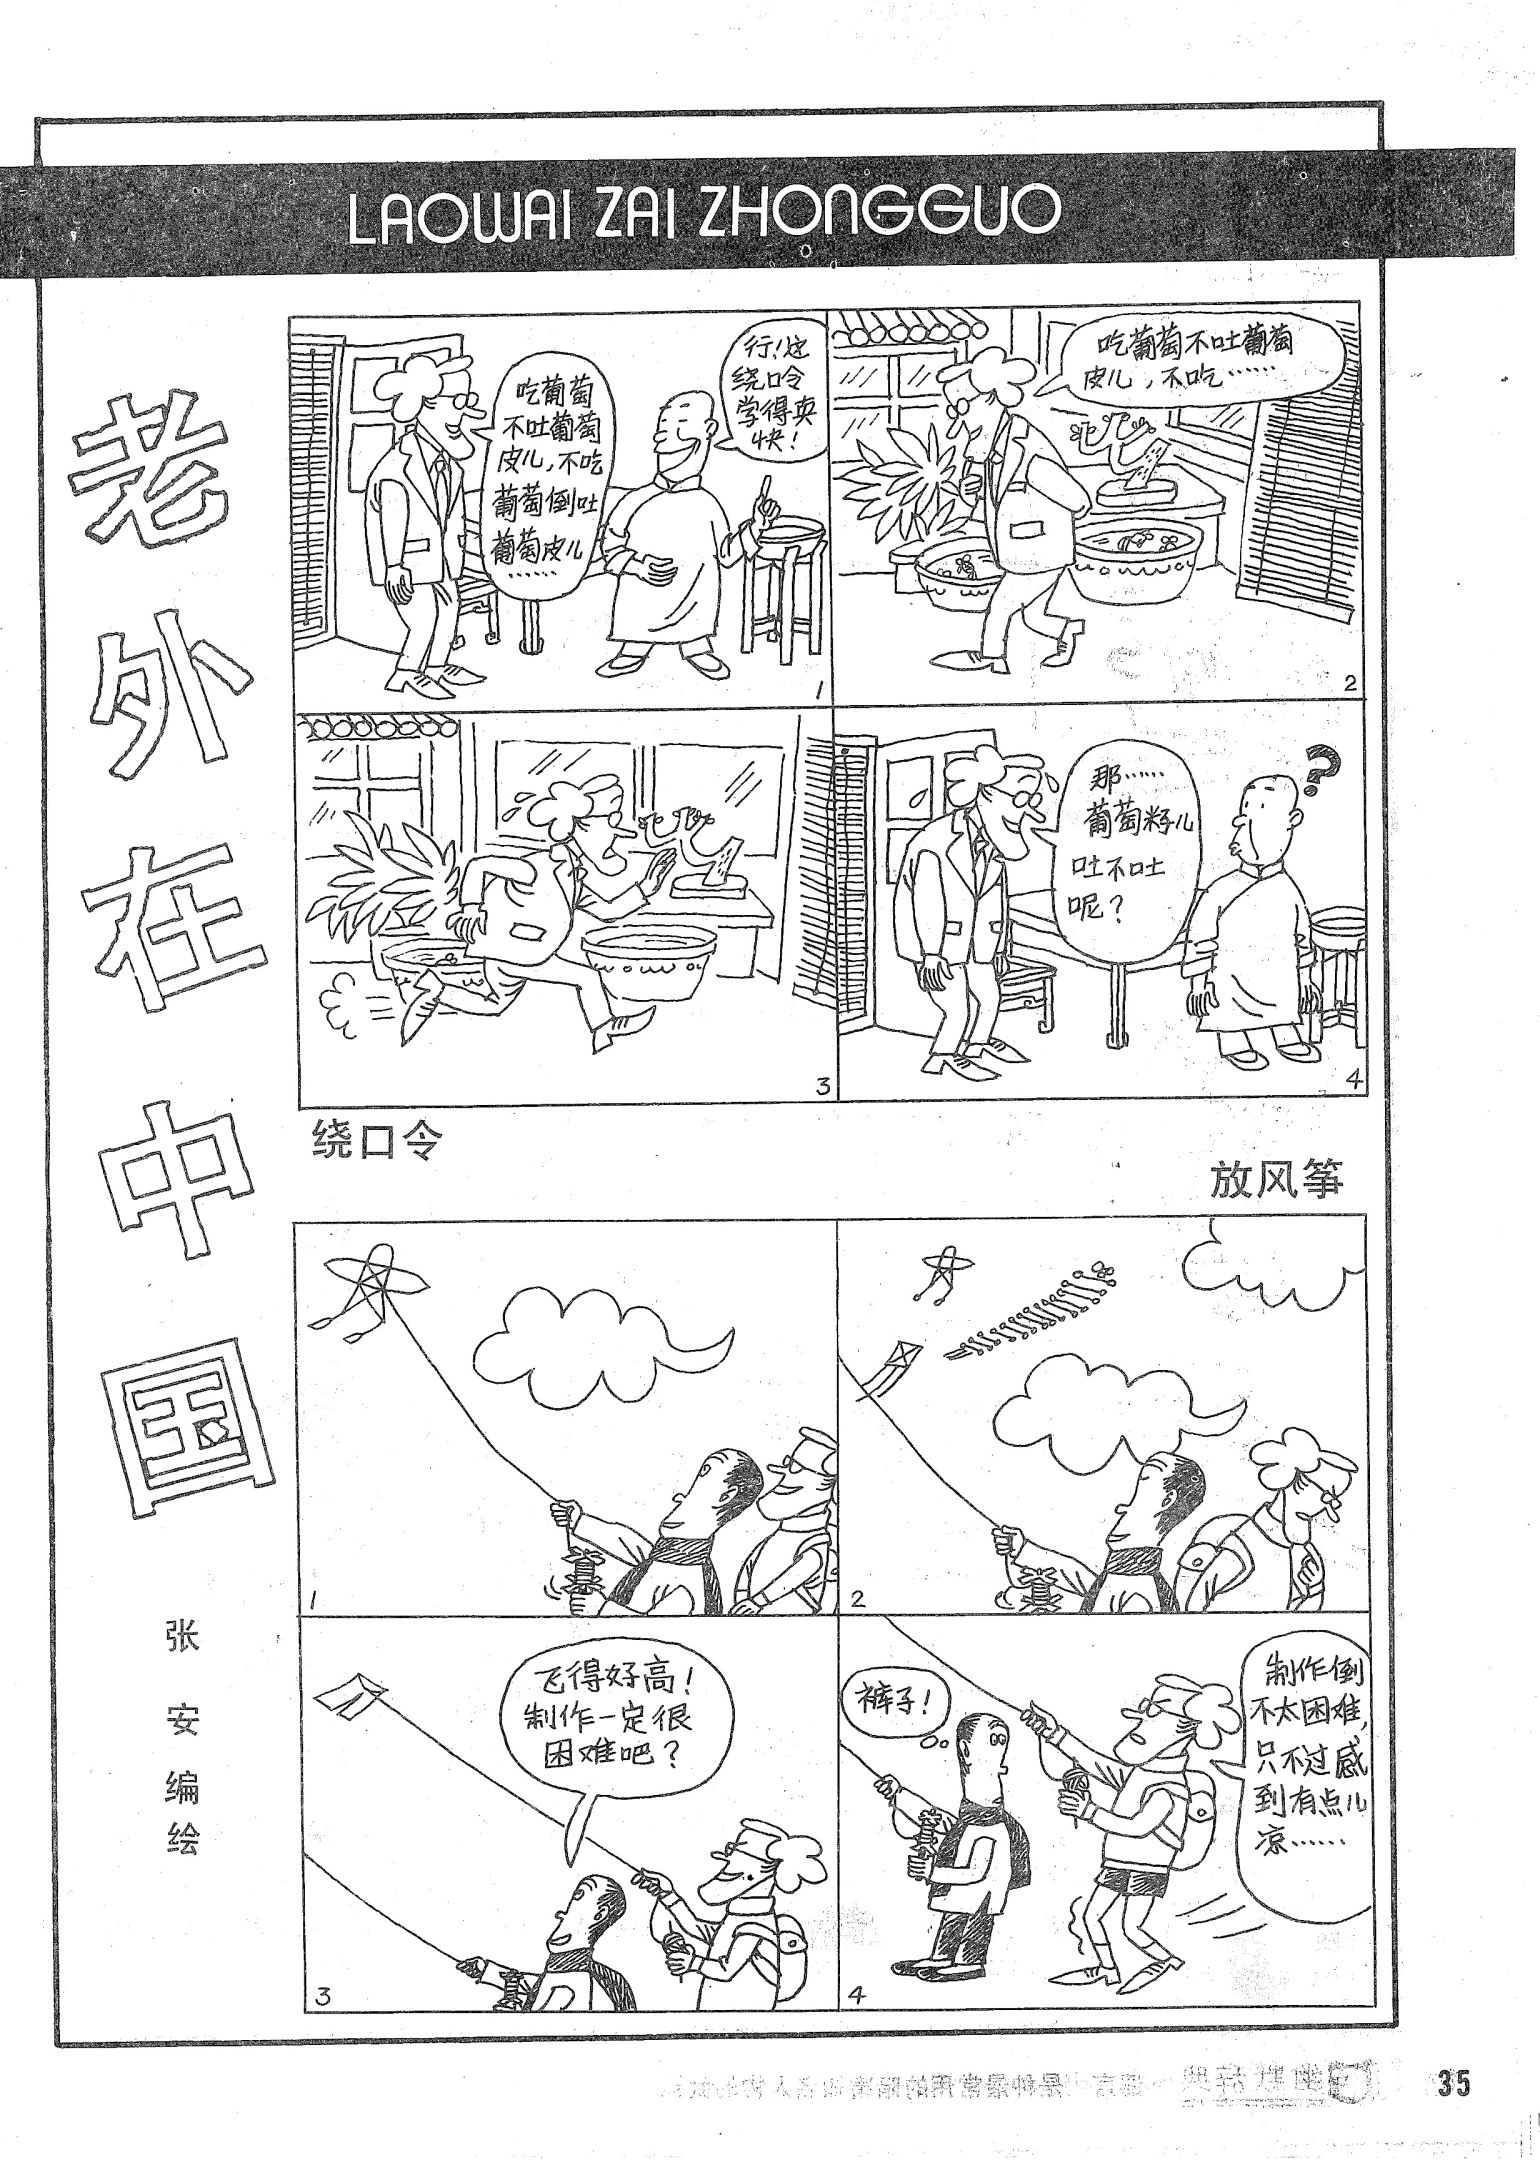 LAOWAI ZAI ZHONGGUO
老外在中国
张安编绘
吃葡萄
不吐葡萄
皮儿,不吃
葡萄倒吐
葡萄皮儿
……
行!这
绕口令
学得真
快!
1
吃葡萄不吐葡萄
皮儿,不吃……
2
3
那……
葡萄籽儿
吐不吐
呢?
?
4
绕口令
放风筝
1
2
飞得好高!
制作一定很
困难吧?
3
裤子!
制作倒
不太困难,
只不过感
到有点儿
凉……
4
35